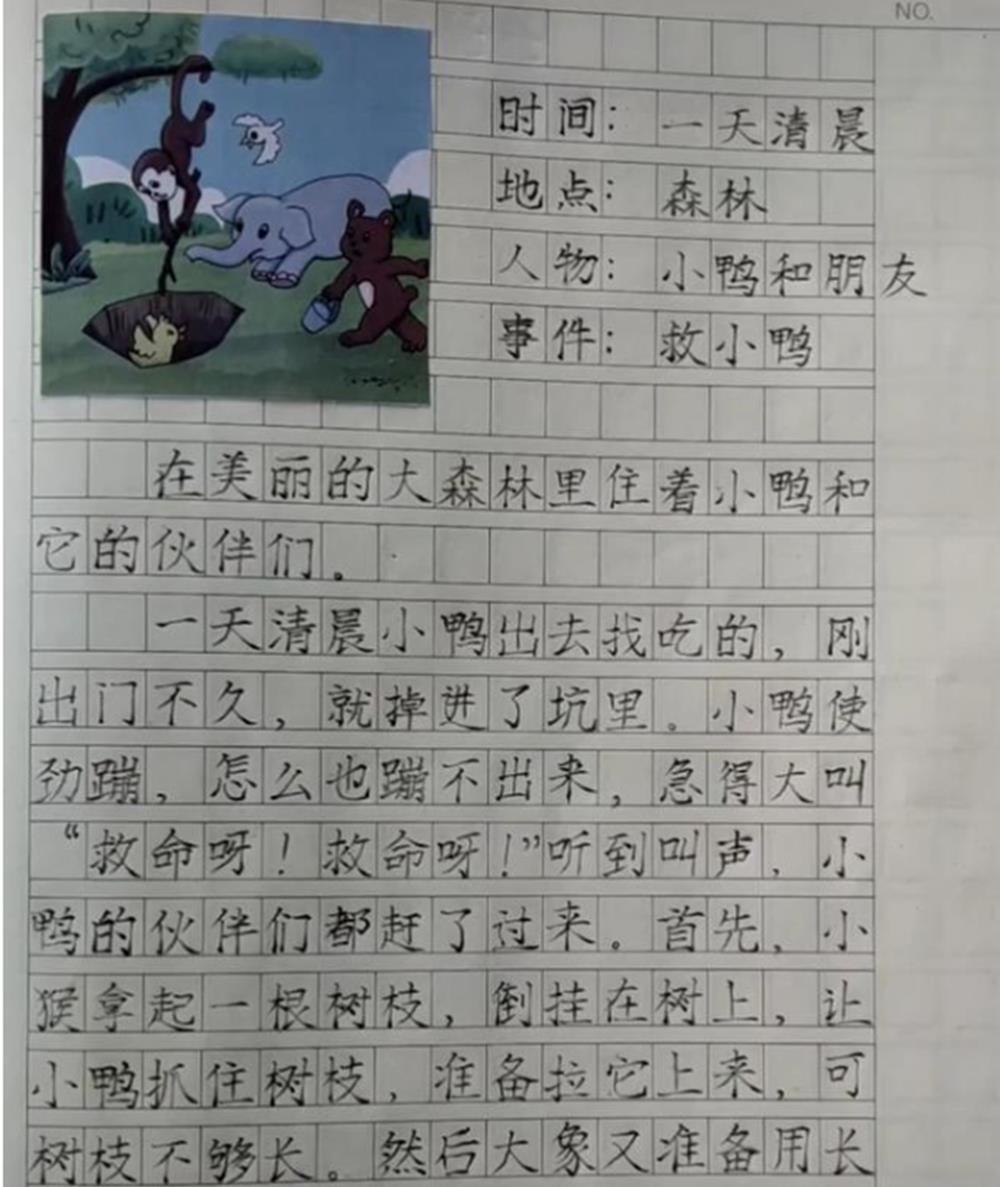 NO.
时间：一天清晨
地点：森林
人物：小鸭和朋友
事件：救小鸭
在美丽的大森林里住着小鸭和
它的伙伴们。
一天清晨小鸭出去找吃的，刚
出门不久，就掉进了坑里。小鸭使
劲蹦，怎么也蹦不出来，急得大叫
“救命呀！救命呀！”听到叫声，小
鸭的伙伴们都赶了过来。首先，小
猴拿起一根树枝，倒挂在树上，让
小鸭抓住树枝，准备拉它上来，可
树枝不够长。然后大象又准备用长